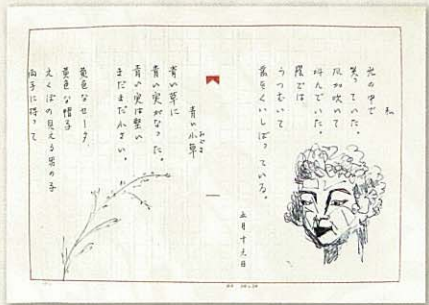 私
光の中で
笑っていた。
風が吹いて
叫んでいた。
陰では
うつむいて
歯をくいしばっている。
五月十六日
青い小草
おぐさ
青い草に
青い実がなった。
青い実は堅い
まだまだ小さい。
黄色なセータ
黄色な帽子
えくぼの見える男の子
両手に持って